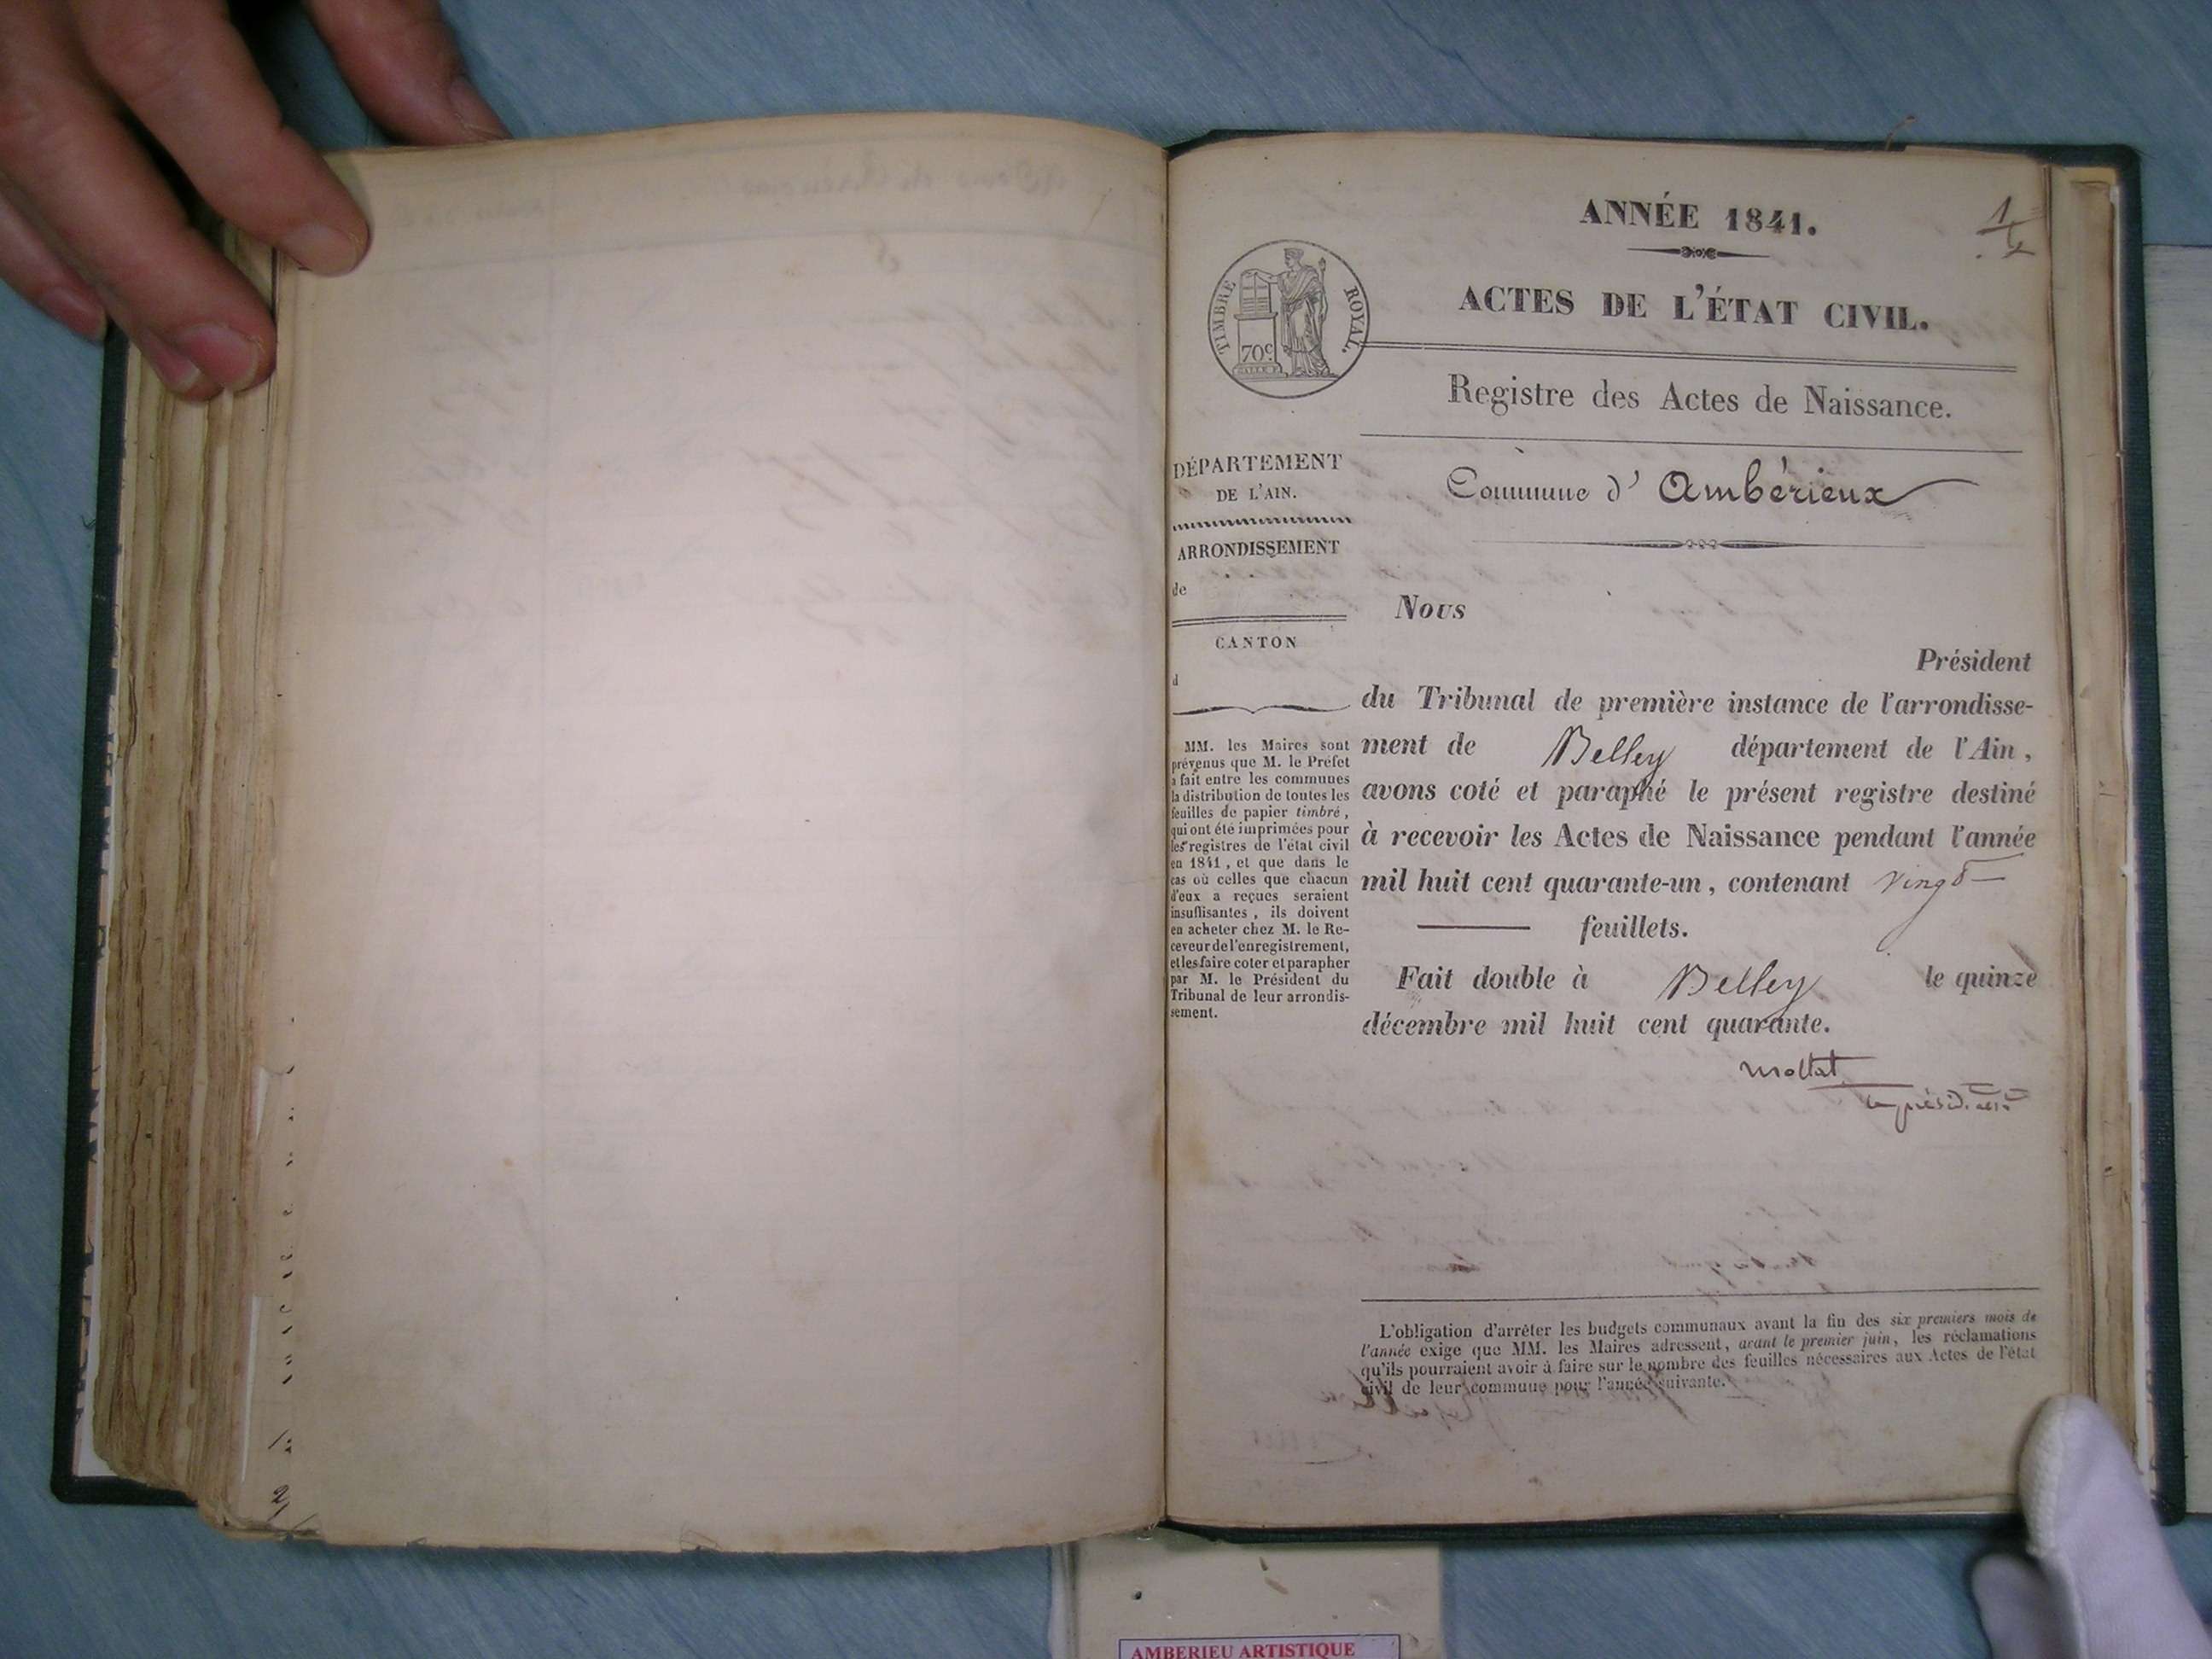 ANNÉE 1841.
ACTES DE L'ÉTAT CIVIL.
TIMBRE ROYAL.
70c
Registre des Actes de Naissance.
Commune d' Ambérieux
DÉPARTEMENT
DE L'AIN.
ARRONDISSEMENT
de
CANTON
d
MM. les Maires sont
prévenus que M. le Préfet
a fait entre les communes
la distribution de toutes les
feuilles de papier timbré,
qui ont été imprimées pour
les registres de l'état civil
en 1841, et que dans le
cas où celles que chacun
d'eux a reçues seraient
insuffisantes, ils doivent
en acheter chez M. le Re-
ceveur de l'enregistrement,
et les faire coter et parapher
par M. le Président du
Tribunal de leur arrondis-
sement.
Nous
Président
du Tribunal de première instance de l'arrondisse-
ment de Belley département de l'Ain,
avons coté et paraphé le présent registre destiné
à recevoir les Actes de Naissance pendant l'année
mil huit cent quarante-un, contenant vingt
feuillets.
Fait double à Belley le quinze
décembre mil huit cent quarante.
L'obligation d'arrêter les budgets communaux avant la fin des six premiers mois de
l'année exige que MM. les Maires adressent, avant le premier juin, les réclamations
qu'ils pourraient avoir à faire sur le nombre des feuilles nécessaires aux Actes de l'état
civil de leur commune pour l'année suivante.
AMBERIEU ARTISTIQUE